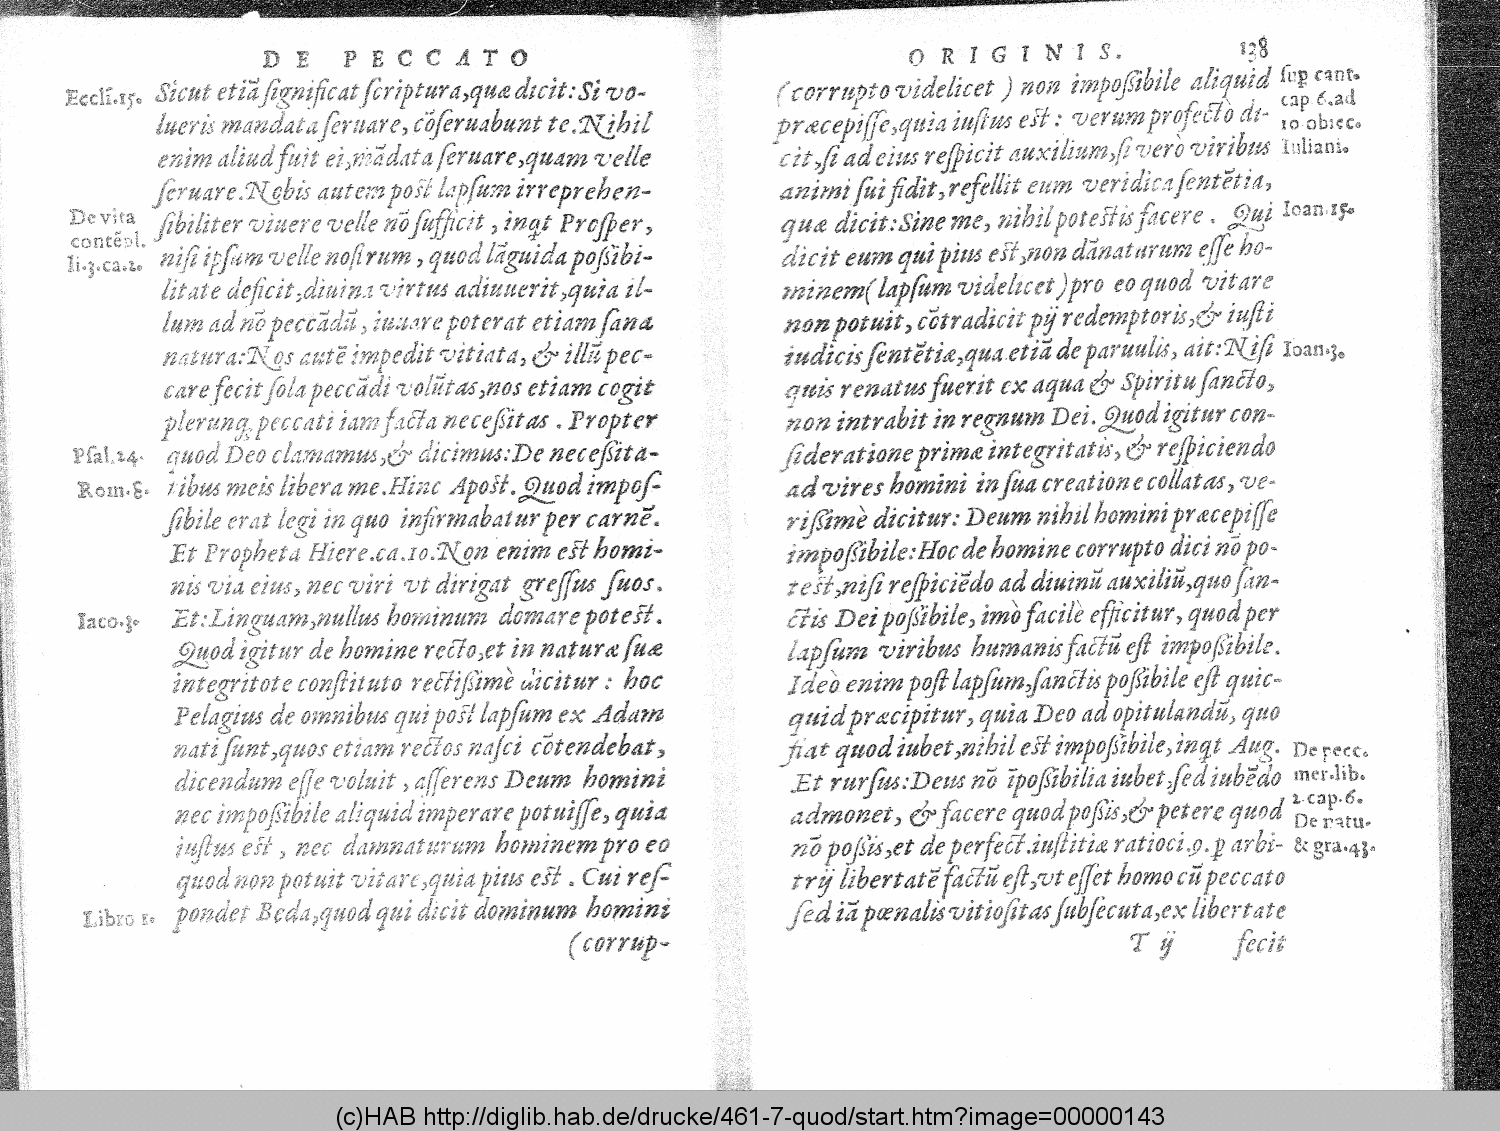 DE PECCATO
Eccli.15.
Sicut etiã ſignificat ſcriptura, quæ dicit: Si vo-
lueris mandata ſeruare, cõſeruabunt te. Nihil
enim aliud fuit ei, mãdata ſeruare, quam velle
ſeruare. Nobis autem poſt lapſum irreprehen-
De vita
contẽpl.
li.3.ca.2.
ſibiliter viuere velle nõ ſufficit, inqt Proſper,
niſi ipſum velle noſtrum, quod lãguida poſſibi-
litate deficit, diuina virtus adiuuerit, quia il-
lum ad nõ peccãdũ, iuuare poterat etiam ſana
natura: Nos autẽ impedit vitiata, & illũ pec-
care fecit ſola peccãdi volũtas, nos etiam cogit
plerunq; peccati iam facta neceſſitas. Propter
Pſal.24.
quod Deo clamamus, & dicimus: De neceſſita-
Rom.8.
tibus meis libera me. Hinc Apoſt. Quod impoſ-
ſibile erat legi in quo infirmabatur per carnẽ.
Et Propheta Hiere.ca.10. Non enim eſt homi-
nis via eius, nec viri vt dirigat greſſus ſuos.
Iaco.3.
Et: Linguam, nullus hominum domare poteſt.
Quod igitur de homine recto, et in naturæ ſuæ
integritote conſtituto rectiſſimè dicitur: hoc
Pelagius de omnibus qui poſt lapſum ex Adam
nati ſunt, quos etiam rectos naſci cõtendebat,
dicendum eſſe voluit, aſſerens Deum homini
nec impoſſibile aliquid imperare potuiſſe, quia
iuſtus eſt, nec damnaturum hominem pro eo
quod non potuit vitare, quia pius eſt. Cui reſ-
Libro 1.
pondet Beda, quod qui dicit dominum homini
(corrup-
ORIGINIS. 138
(corrupto videlicet) non impoſſibile aliquid
præcepiſſe, quia iuſtus eſt: verum profectò di-
cit, ſi ad eius reſpicit auxilium, ſi verò viribus
animi ſui fidit, refellit eum veridica ſentẽtia,
ſup cant.
cap 6.ad
10 obiec.
Iuliani.
quæ dicit: Sine me, nihil poteſtis facere. Qui
Ioan.15.
dicit eum qui pius eſt, non dãnaturum eſſe ho-
minem (lapſum videlicet) pro eo quod vitare
non potuit, cõtradicit pij redemptoris, & iuſti
iudicis ſentẽtiæ, qua etiã de paruulis, ait: Niſi
Ioan.3.
quis renatus fuerit ex aqua & Spiritu ſancto,
non intrabit in regnum Dei. Quod igitur con-
ſideratione primæ integritatis, & reſpiciendo
ad vires homini in ſua creatione collatas, ve-
riſſimè dicitur: Deum nihil homini præcepiſſe
impoſſibile: Hoc de homine corrupto dici nõ po-
teſt, niſi reſpiciẽdo ad diuinũ auxiliũ, quo ſan-
ctis Dei poſſibile, imò facilè efficitur, quod per
lapſum viribus humanis factũ eſt impoſſibile.
Ideò enim poſt lapſum, ſanctis poſſibile eſt quic-
quid præcipitur, quia Deo ad opitulandũ, quo
fiat quod iubet, nihil eſt impoſſibile, inqt Aug.
De pecc.
mer.lib.
2.cap.6.
De natu.
& gra.43.
Et rurſus: Deus nõ ĩpoſſibilia iubet, ſed iubẽdo
admonet, & facere quod poſſis, & petere quod
nõ poſſis, et de perfect. iuſtitiæ ratioci.9. ꝑ arbi-
trij libertatẽ factũ eſt, vt eſſet homo cũ peccato
ſed iã pœnalis vitioſitas ſubſecuta, ex libertate
T ij fecit
(c)HAB http://diglib.hab.de/drucke/461-7-quod/start.htm?image=00000143